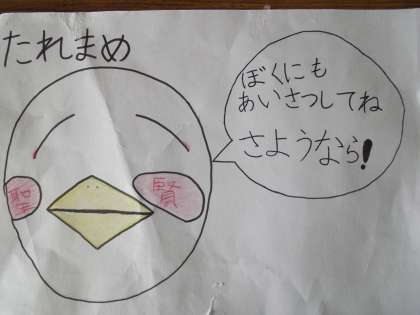 たれまめ
ぼくにも
あいさつしてね
さようなら!
聖
賢